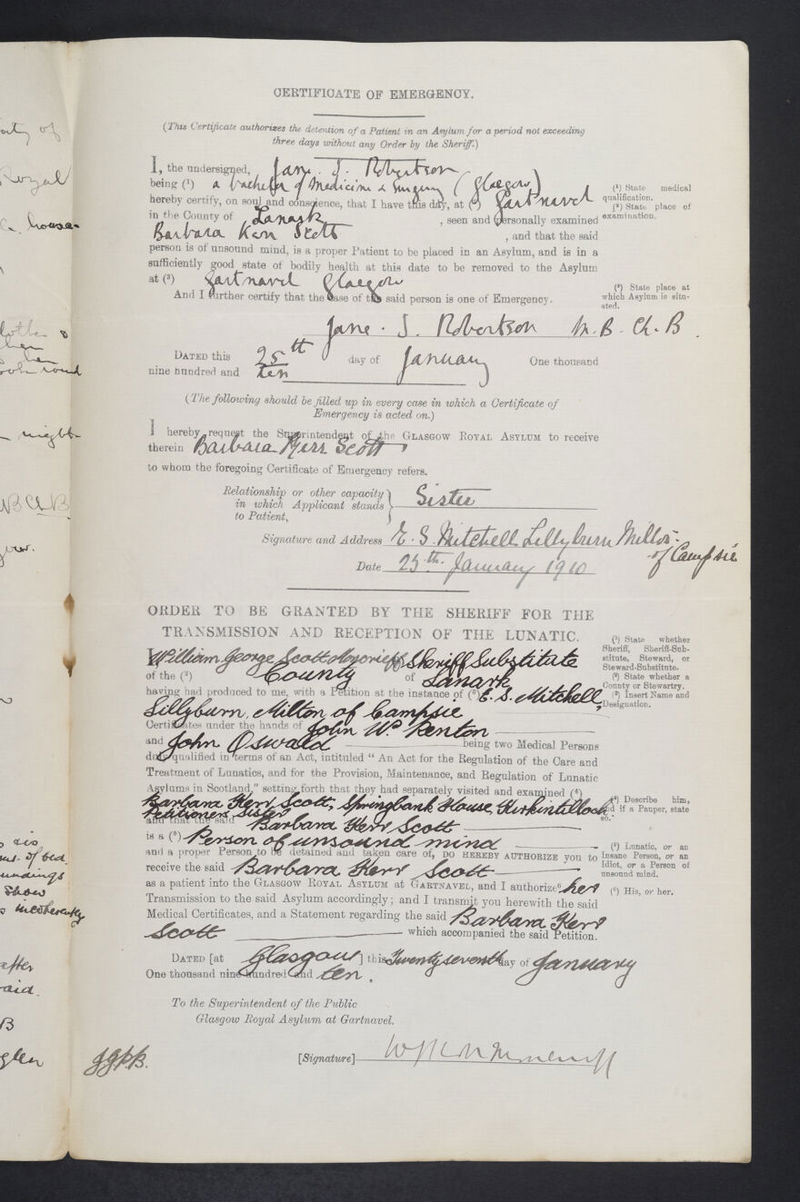 CERTIFICATE OF EMERGENCY.
(This Certificate authorizes the detention of a Patient in an Asylum for a period not exceeding
three days without any Order by the Sheriff.)
I, the undersigned, Jane. S. Robertson
being (¹) a bachelor of Medicine & Surgery (Glasgow)
hereby certify, on soul and conscience, that I have this day, at (²) Gartnavel
in the County of Lanark, seen and personally examined
Barbara Kerr Scott, and that the said
person is of unsound mind, is a proper Patient to be placed in an Asylum, and is in a
sufficiently good state of bodily health at this date to be removed to the Asylum
at (³) Gartnavel Glasgow
And I further certify that the case of the said person is one of Emergency.
(¹) State medical
qualification.
(²) State place of
examination.
(³) State place at
which Asylum is situ-
ated.
Jane. S. Robertson M.B. Ch.B.
DATED this 25th day of January One thousand
nine hundred and ten
(The following should be filled up in every case in which a Certificate of
Emergency is acted on.)
I hereby request the Superintendent of the GLASGOW ROYAL ASYLUM to receive
therein Barbara Kerr Scott,
to whom the foregoing Certificate of Emergency refers.
Relationship or other capacity
in which Applicant stands
to Patient,
Sister
Signature and Address E. S. Mitchell Lillyburn Milton-
of Campsie
Date 25th January 1910
ORDER TO BE GRANTED BY THE SHERIFF FOR THE
TRANSMISSION AND RECEPTION OF THE LUNATIC.
I William George Scott Moncrieff (¹) Sheriff Substitute
of the (²) County of Lanark
having had produced to me, with a Petition at the instance of (³) E. S. Mitchell,
Lillyburn, Milton of Campsie
Certificates under the hands of John W. Renton
and John Oswald being two Medical Persons
duly qualified in terms of an Act, intituled “ An Act for the Regulation of the Care and
Treatment of Lunatics, and for the Provision, Maintenance, and Regulation of Lunatic
Asylums in Scotland,” setting forth that they had separately visited and examined (⁴)
Barbara Kerr Scott, Springbank House, Kirkintilloch
Petitioners Sister
and that the said Barbara Kerr Scott
is a (⁵) Person of unsound mind
and a proper Person to be detained and taken care of, DO HEREBY AUTHORIZE you to
receive the said Barbara Kerr Scott
as a patient into the GLASGOW ROYAL ASYLUM at GARTNAVEL, and I authorize (⁶) her
Transmission to the said Asylum accordingly; and I transmit you herewith the said
Medical Certificates, and a Statement regarding the said Barbara Kerr
Scott which accompanied the said Petition.
(¹) State whether
Sheriff, Sheriff-Sub-
stitute, Steward, or
Steward-Substitute.
(²) State whether a
County or Stewartry.
(³) Insert Name and
Designation.
(⁴) Describe him,
and if a Pauper, state
so.
(⁵) Lunatic, or an
Insane Person, or an
Idiot, or a Person of
unsound mind.
(⁶) His, or her.
DATED [at Glasgow] this Twenty seventh day of January
One thousand nine hundred and ten.
To the Superintendent of the Public
Glasgow Royal Asylum at Gartnavel.
[Signature]